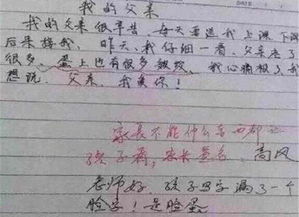 我的父亲
我的父亲很辛苦,每天要送我上课,下课
后来接我,昨天,我仔细一看,父亲老了
很多,蛋上也有很多皱纹,我心痛极了,我
想说,父亲,我爱你!
家长不能什么字也都让
孩子看,家长签名,高风
老师好,孩子只是漏了一个
脸字!是脸蛋